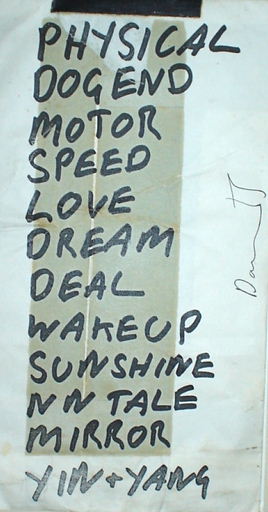 PHYSICAL
DOGEND
MOTOR
SPEED
LOVE
DREAM
DEAL
WAKEUP
SUNSHINE
NN TALE
MIRROR
YIN+YANG